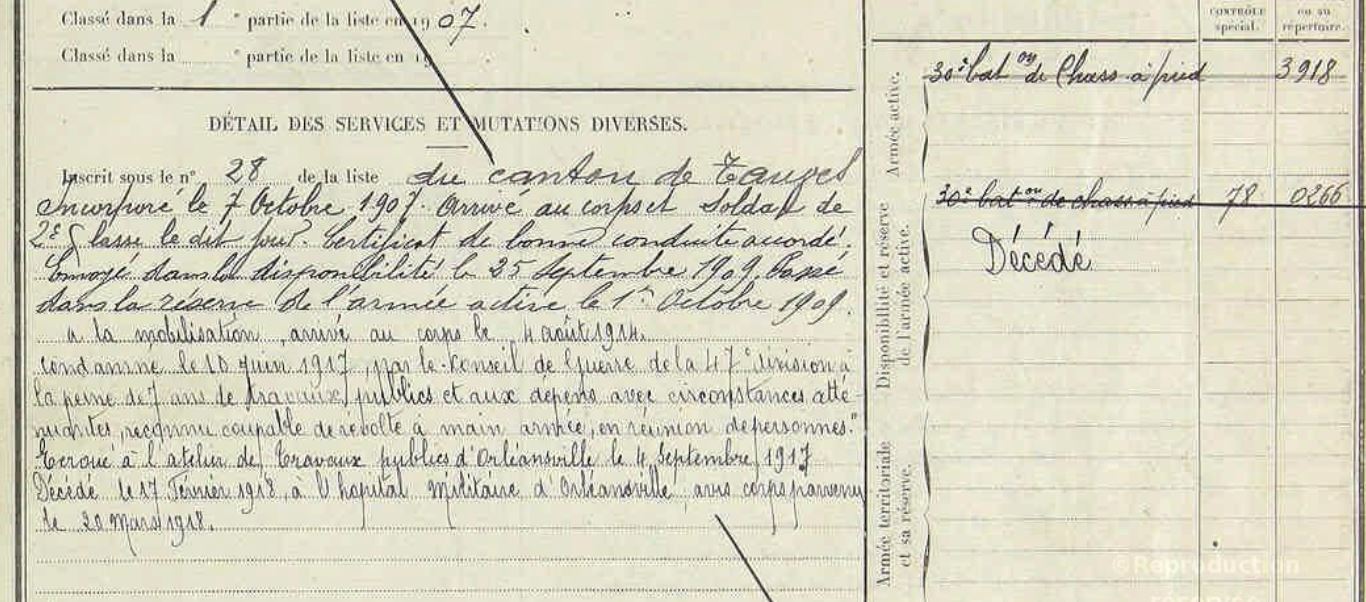 Classé dans la 1e partie de la liste en 1907.
Classé dans la e partie de la liste en 19
DÉTAIL DES SERVICES ET MUTATIONS DIVERSES.
Inscrit sous le n° 28 de la liste du canton de Tauves
Incorporé le 7 Octobre 1907. Arrivé au corps et Soldat de
2e Classe le dit jour. Certificat de bonne conduite accordé.
Envoyé dans la disponibilité le 25 Septembre 1909. Passé
dans la réserve de l'armée active le 1er Octobre 1909.
a la mobilisation, arrivé au corps le 4 août 1914.
Condamné le 10 Juin 1917, par le Conseil de Guerre de la 47e division à
la peine de 7 ans de travaux publics et aux dépens avec circonstances atté-
nuantes, reconnu coupable de revolte à main armée, en réunion de personnes."
Ecroué à l'atelier de Travaux publics d'Orléansville le 4 Septembre 1917
Décédé le 17 Février 1918, à l'hopital Militaire d'Orléansville, avis corps parvenu
le 20 Mars 1918.
CONTRÔLE
spécial.
ou au
répertoire.
Armée active.
30e bat.on de Chass. à pied 3918
Disponibilité et réserve
de l'armée active.
30e bat.on de chass. à pied 78 0266
Décédé
Armée territoriale
et sa réserve.
©Reproduction
réservée